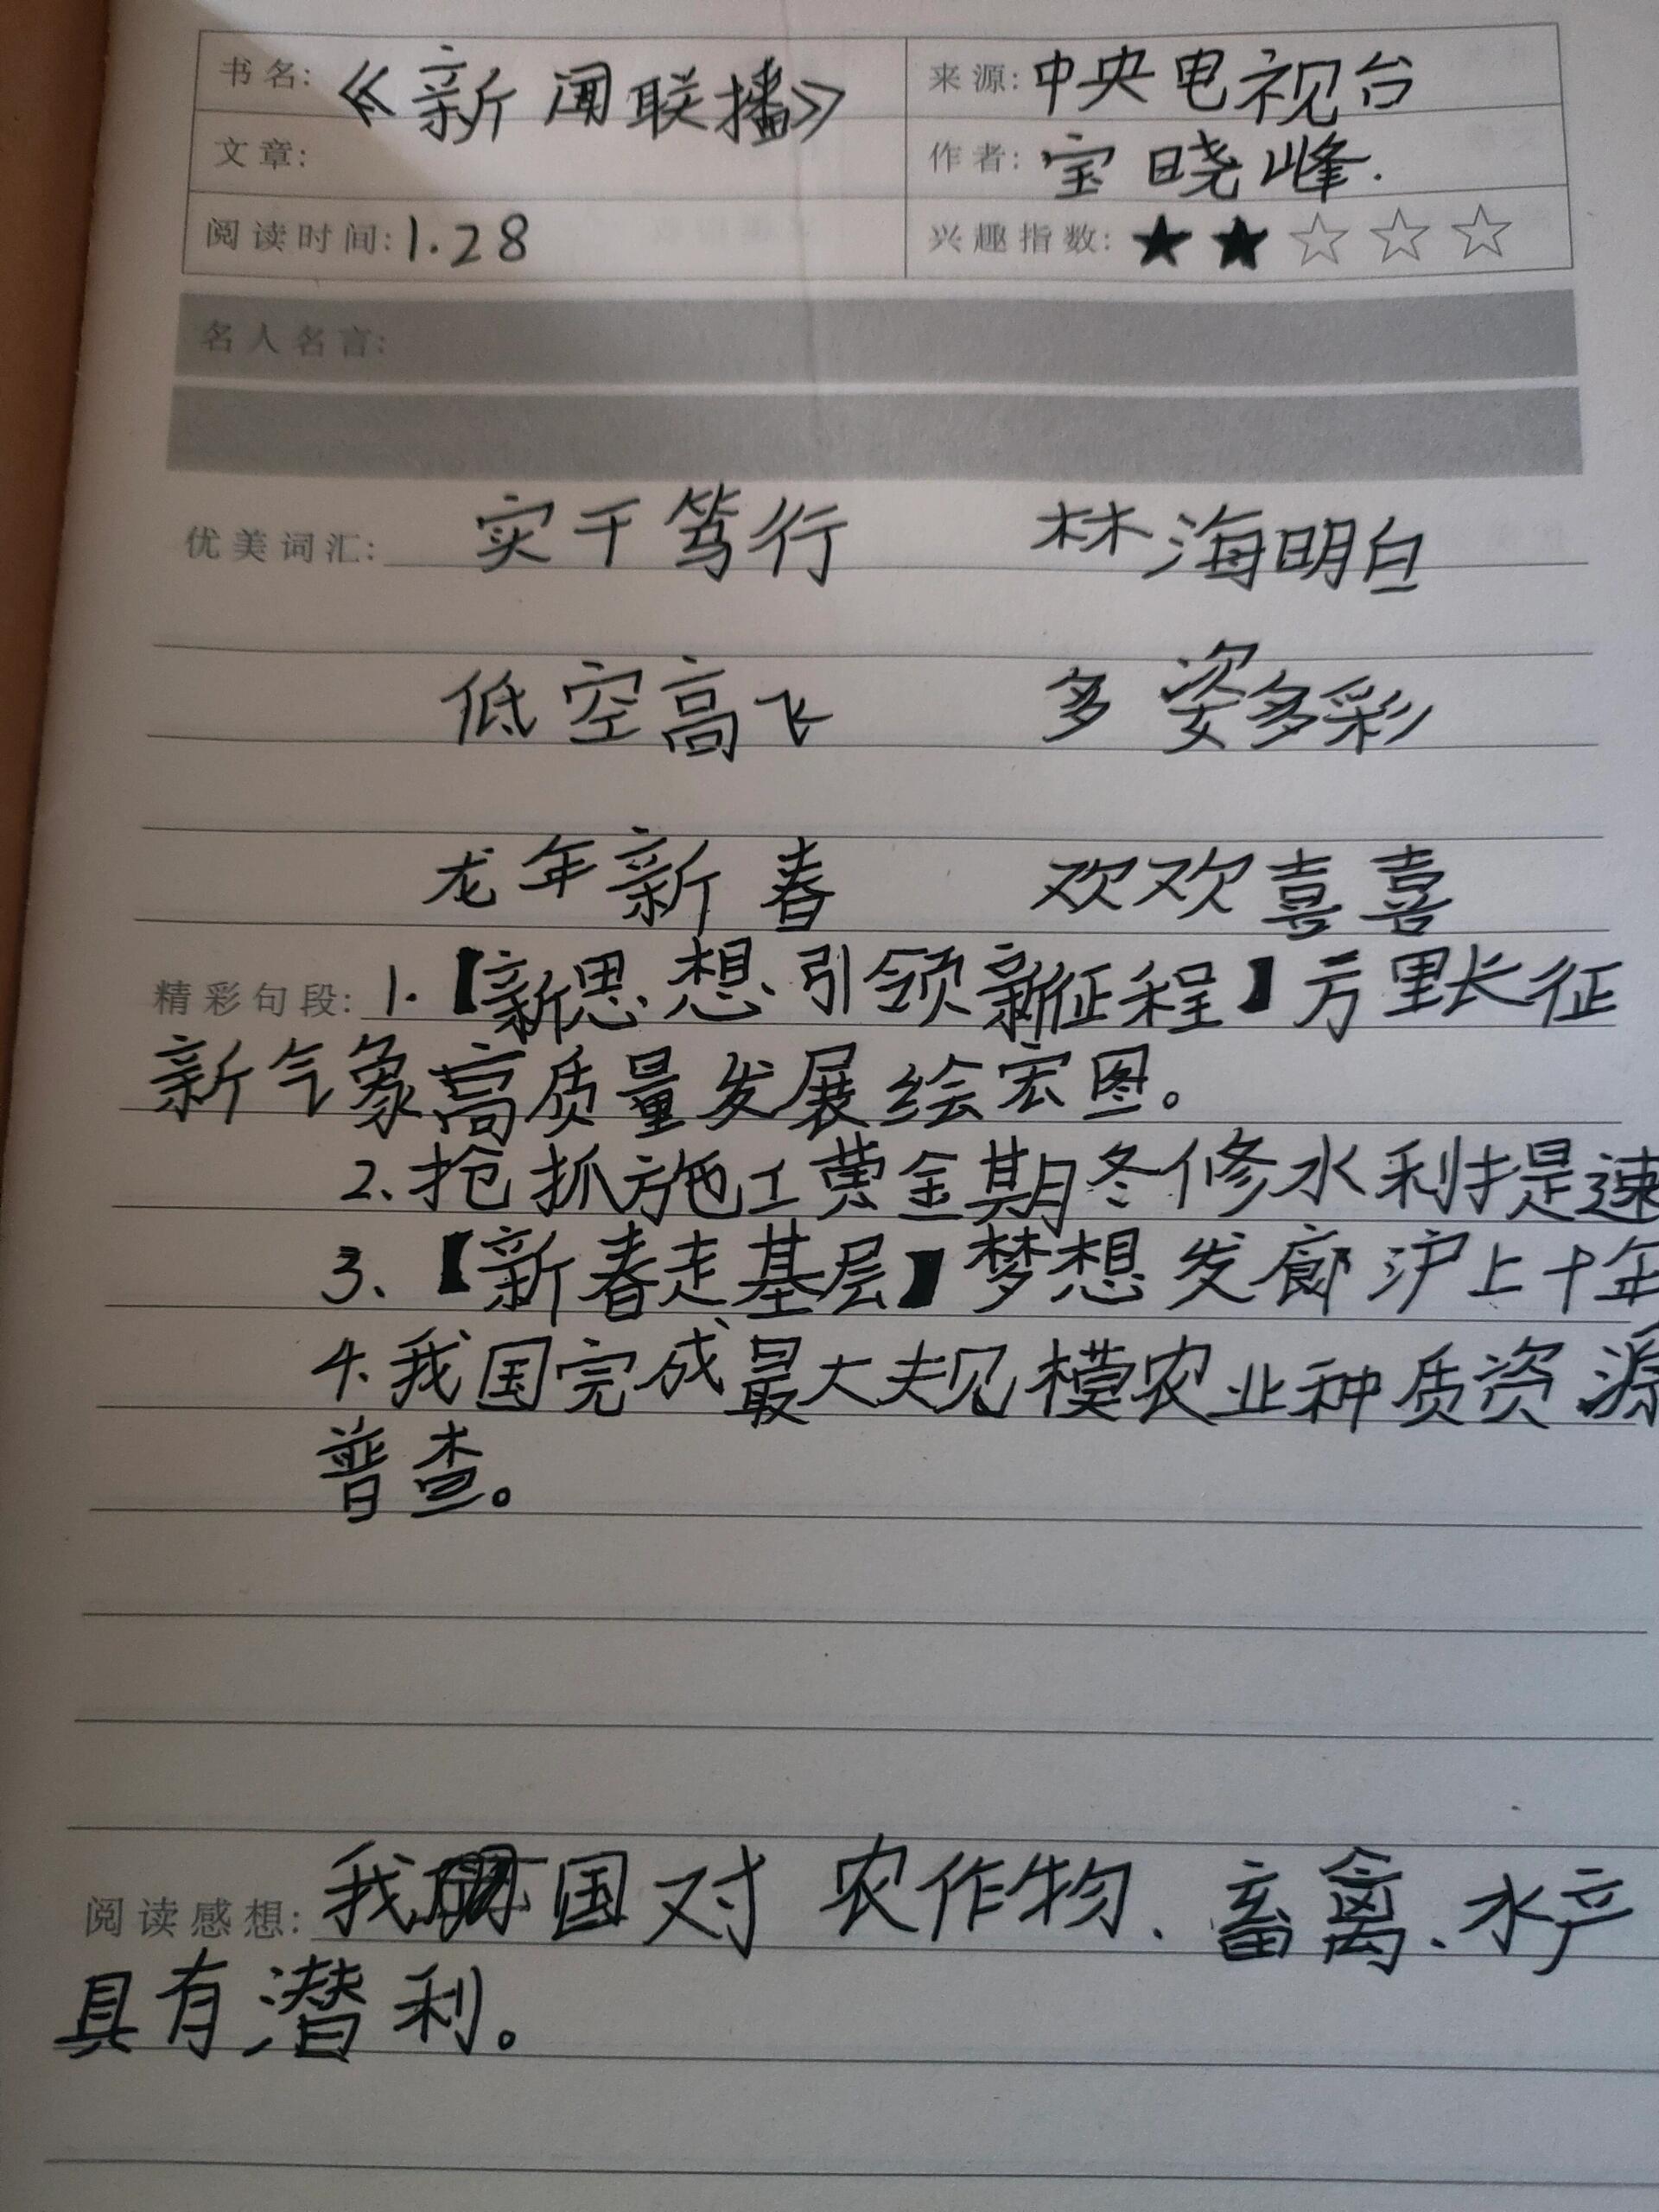 书名: 《新闻联播》 来源: 中央电视台
文章: 作者: 宝晓峰.
阅读时间: 1.28 兴趣指数: ★★☆☆☆
名人名言:
优美词汇: 实干笃行 林海明白
低空高飞 多姿多彩
龙年新春 欢欢喜喜
精彩句段: 1.【新思想引领新征程】万里长征
新气象高质量发展绘宏图。
2、抢抓施工黄金期冬修水利提速
3、【新春走基层】梦想发廊沪上十年
4.我国完成最大规模农业种质资源
普查。
阅读感想: 我国对农作物、畜禽、水产
具有潜利。